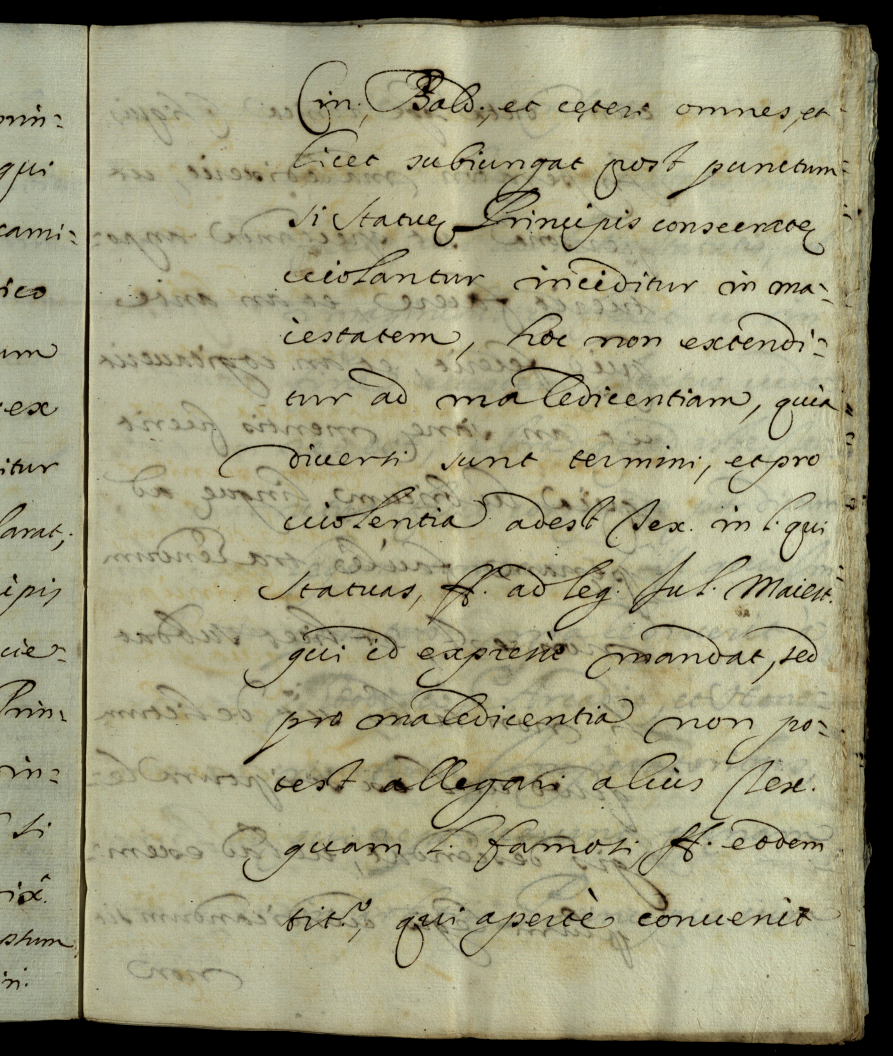 min:
qui
cami:
ico
um
ex
itur
larat;
ipis
Prin:
rin:
si
stum
Cin:, Bald:, et cęteri omnes, et
licet subiungat post punctum
si statuę Principis consecratę
uiolantur inciditur in ma:
iestatem, hoc non extendi:
tur ad maledicentiam, quia
diuersi sunt termini, et pro
uiolentia adest tex. in l. qui
statuas, ff. ad leg. Jul. Maiest:
qui id expresse mandat, sed
pro maledicentia non po:
test allegari alius tex.
quam l. famosi, ff. eodem
tit.º, qui apertè conuenit